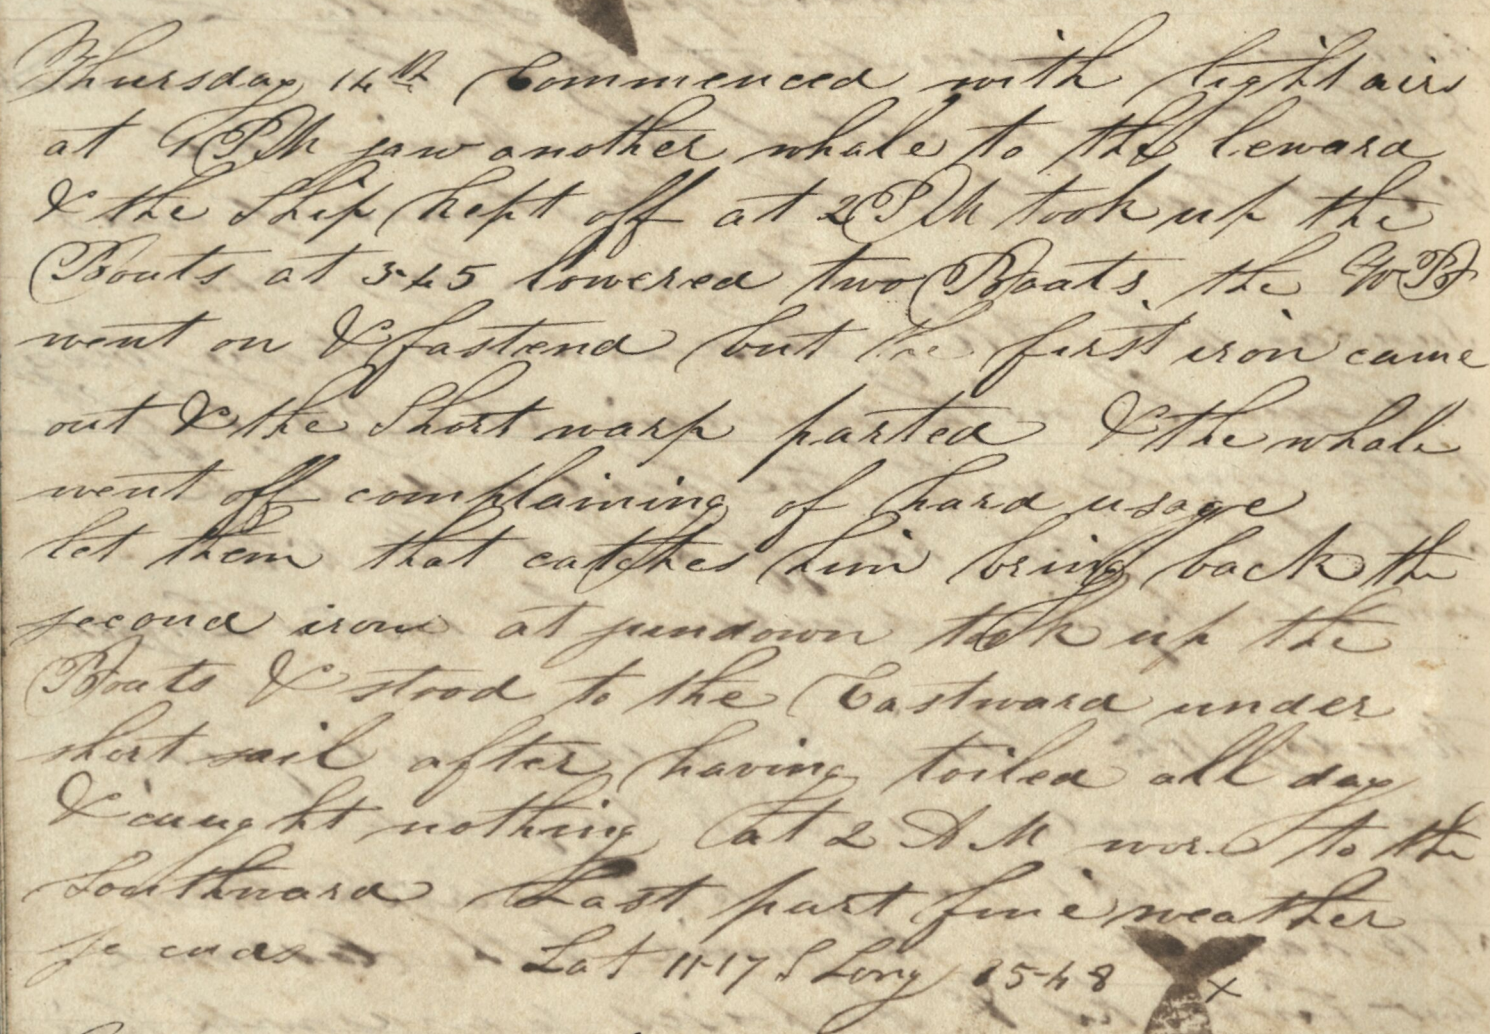 Thursday 14th Commenced with light airs
at 1 PM saw another whale to the leward
& the Ship kept off at 2 PM took up the
Boats at 3-45 lowered two Boats the WB
went on & fastend but the first iron came
out & the Short warp parted & the whale
went off complaining of hard usage
let them that catches him bring back the
second iron at sundown took up the
Boats & stood to the Eastward under
short sail after having toiled all day
& caught nothing at 2 A M wore to the
Southward Last part fine weather
so ends Lat 11-17 S Long 85-48 x